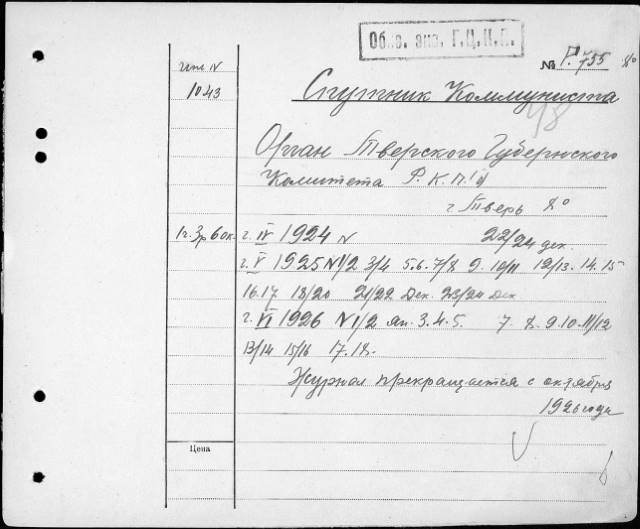 Обяз. экз. Г.Ц.К.П.
№ Р.755 8°
инт N
1043
Спутник Коммуниста
48
Орган Тверского Губернского
Комитета Р.К.П.
г Тверь 8°
1г. 3р 60к
г. IV 1924 N 22/24 дек.
г. V 1925 N 1/2 3/4 5.6.7/8 9. 10/11 12/13. 14. 15
16.17 18/20 21/22. Дек. 23/24 Дек
г. VI 1926 N 1/2 ян. 3. 4. 5. 7. 8. 9. 10. 11/12
13/14 15/16 17.18.
Журнал прекращается с октября
1926 года
Цена